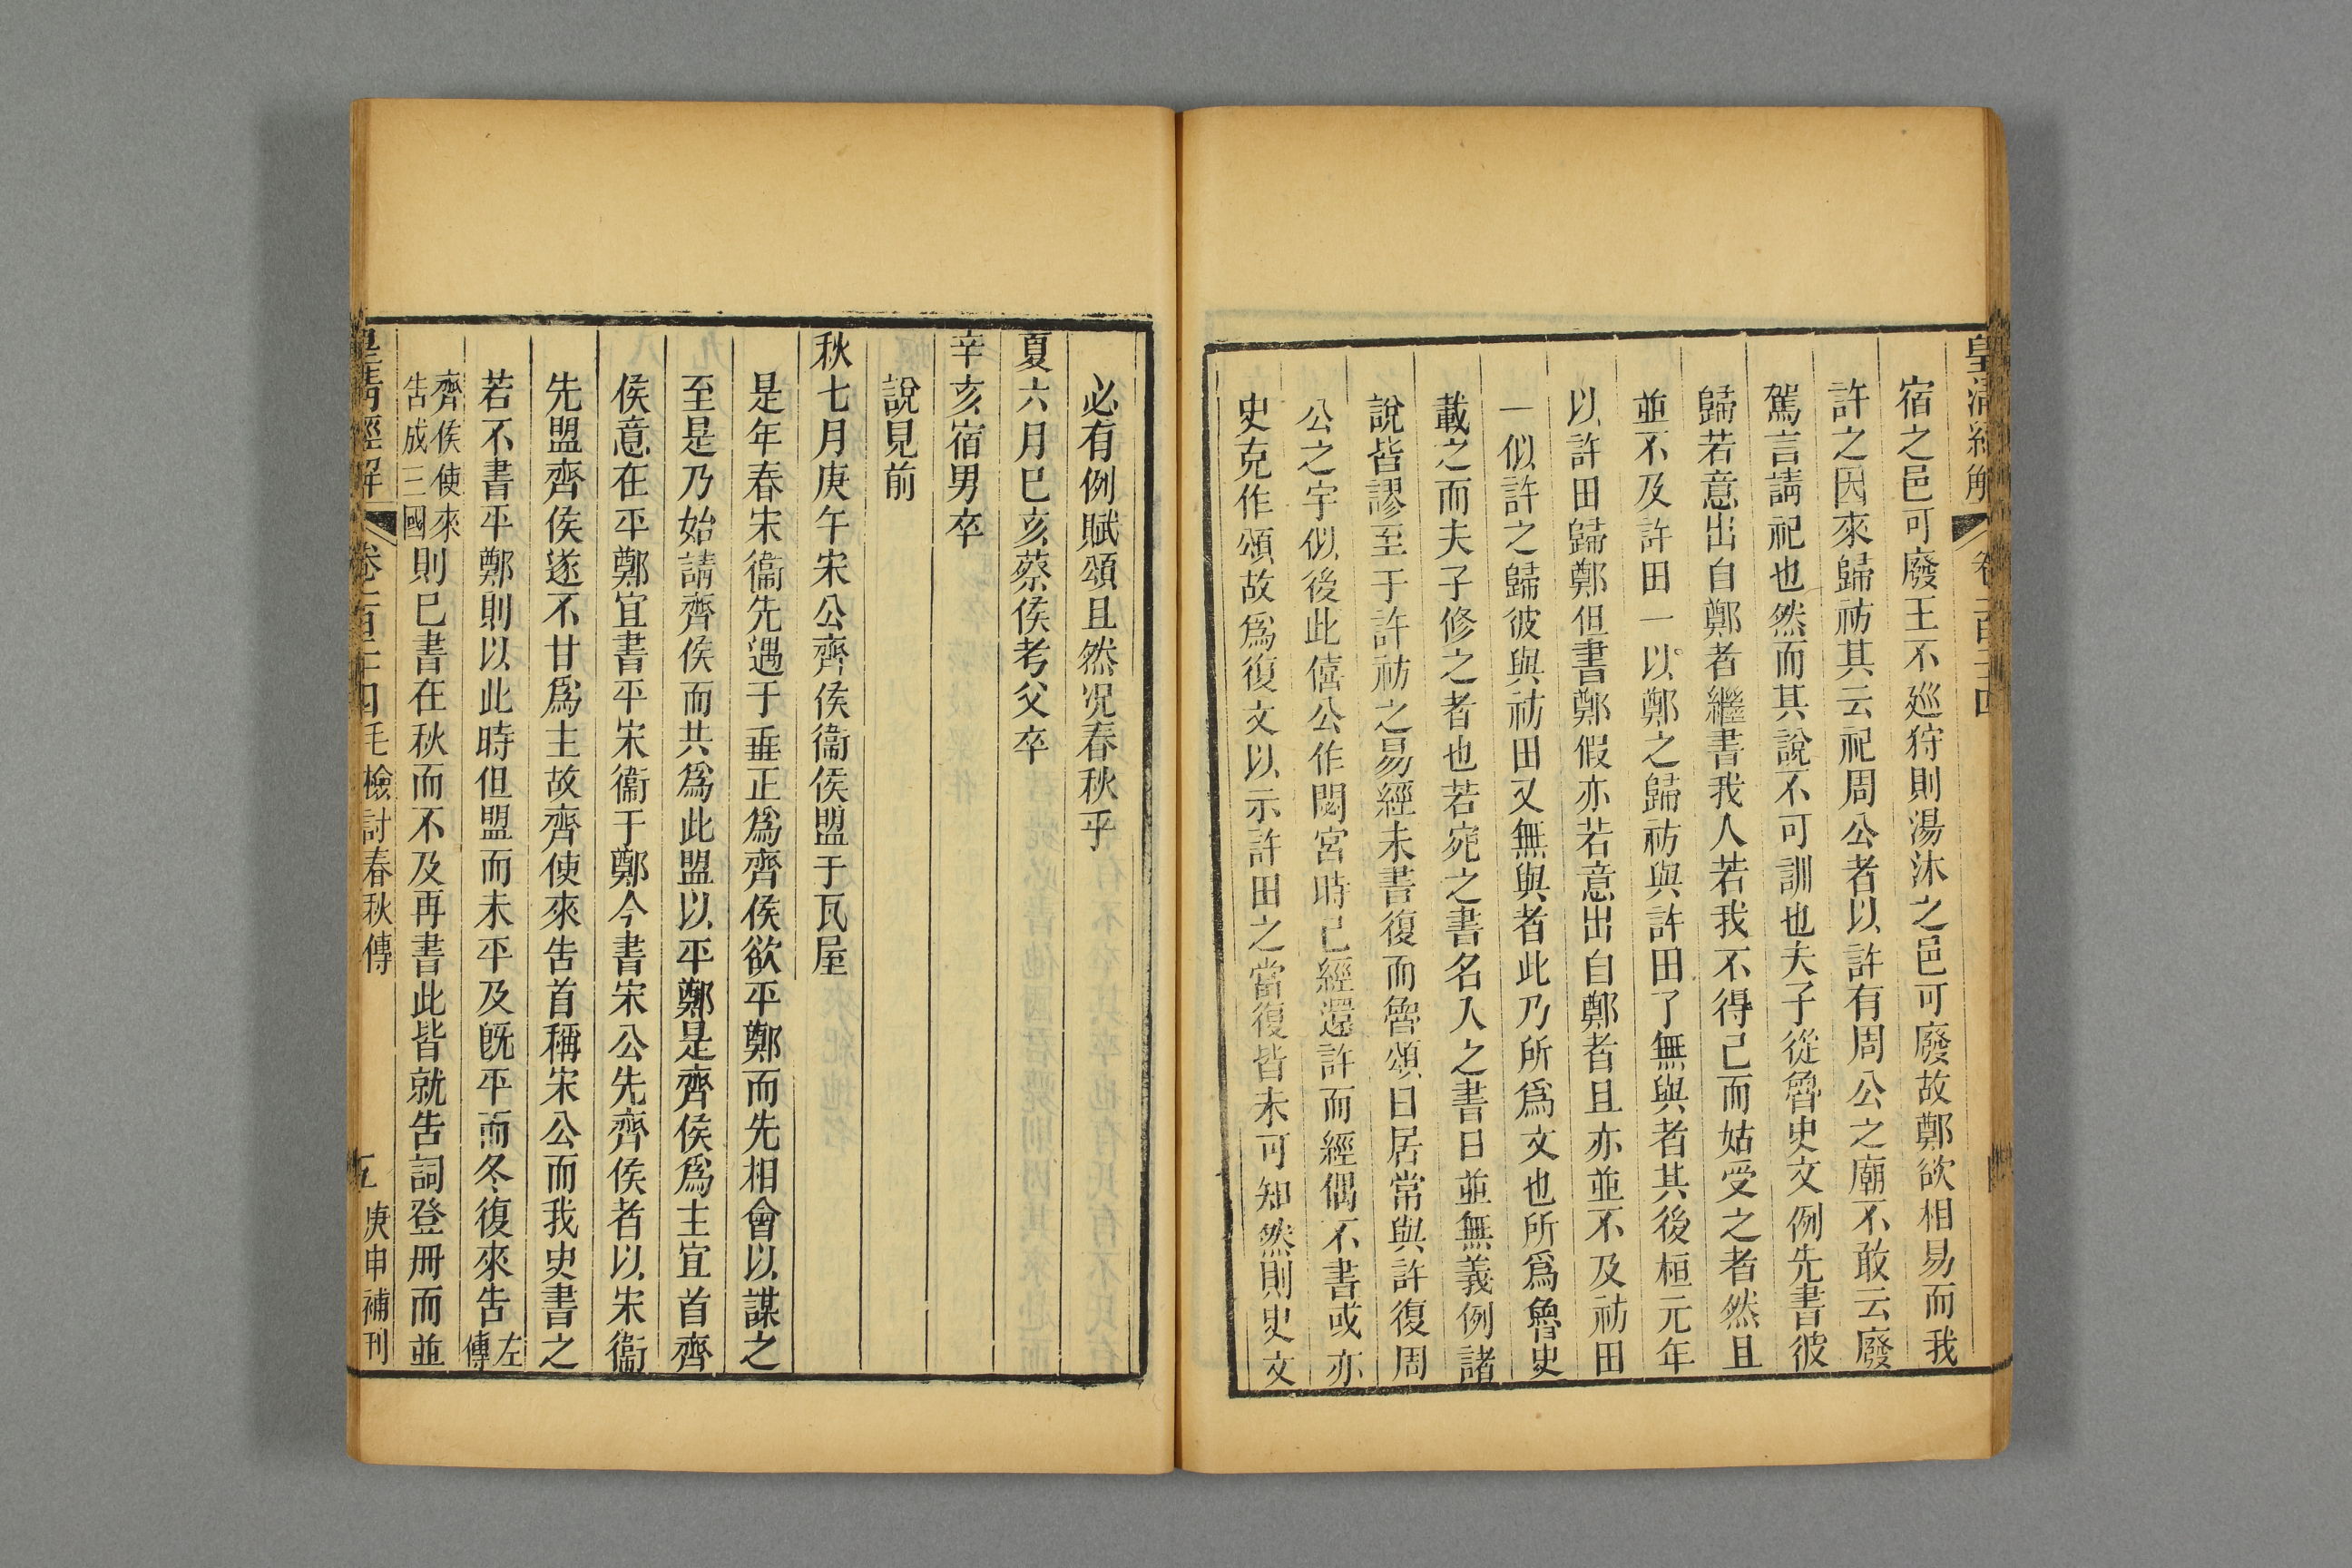 皇清經解 卷一百二十四
宿之邑可廢王不廵狩則湯沐之邑可廢故鄭欲相易而我
許之因來歸祊其云祀周公者以許有周公之廟不敢云廢
駕言請祀也然而其說不可訓也夫子從魯史文例先書彼
歸若意出自鄭者繼書我人若我不得已而姑受之者然且
並不及許田一以鄭之歸祊與許田了無與者其後桓元年
以許田歸鄭但書鄭假亦若意出自鄭者且亦並不及祊田
一似許之歸彼與祊田又無與者此乃所爲文也所爲魯史
載之而夫子修之者也若宛之書名人之書日並無義例諸
說皆謬至于許祊之易經未書復而魯頌曰居常與許復周
公之宇似後此僖公作閟宮時已經還許而經偶不書或亦
史克作頌故爲復文以示許田之當復皆未可知然則史文
必有例賦頌且然况春秋乎
夏六月巳亥蔡侯考父卒
辛亥宿男卒
說見前
秋七月庚午宋公齊侯衞侯盟于瓦屋
是年春宋衞先遇于垂正爲齊侯欲平鄭而先相會以謀之
至是乃始請齊侯而共爲此盟以平鄭是齊侯爲主宜首齊
侯意在平鄭宜書平宋衞于鄭今書宋公先齊侯者以宋衞
先盟齊侯遂不甘爲主故齊使來告首稱宋公而我史書之
若不書平鄭則以此時但盟而未平及旣平而冬復來告左傳
齊侯使來告成三國則巳書在秋而不及再書此皆就告詞登冊而並
皇淸經解 卷一百二十四毛檢討春秋傳 五 庚申補刊